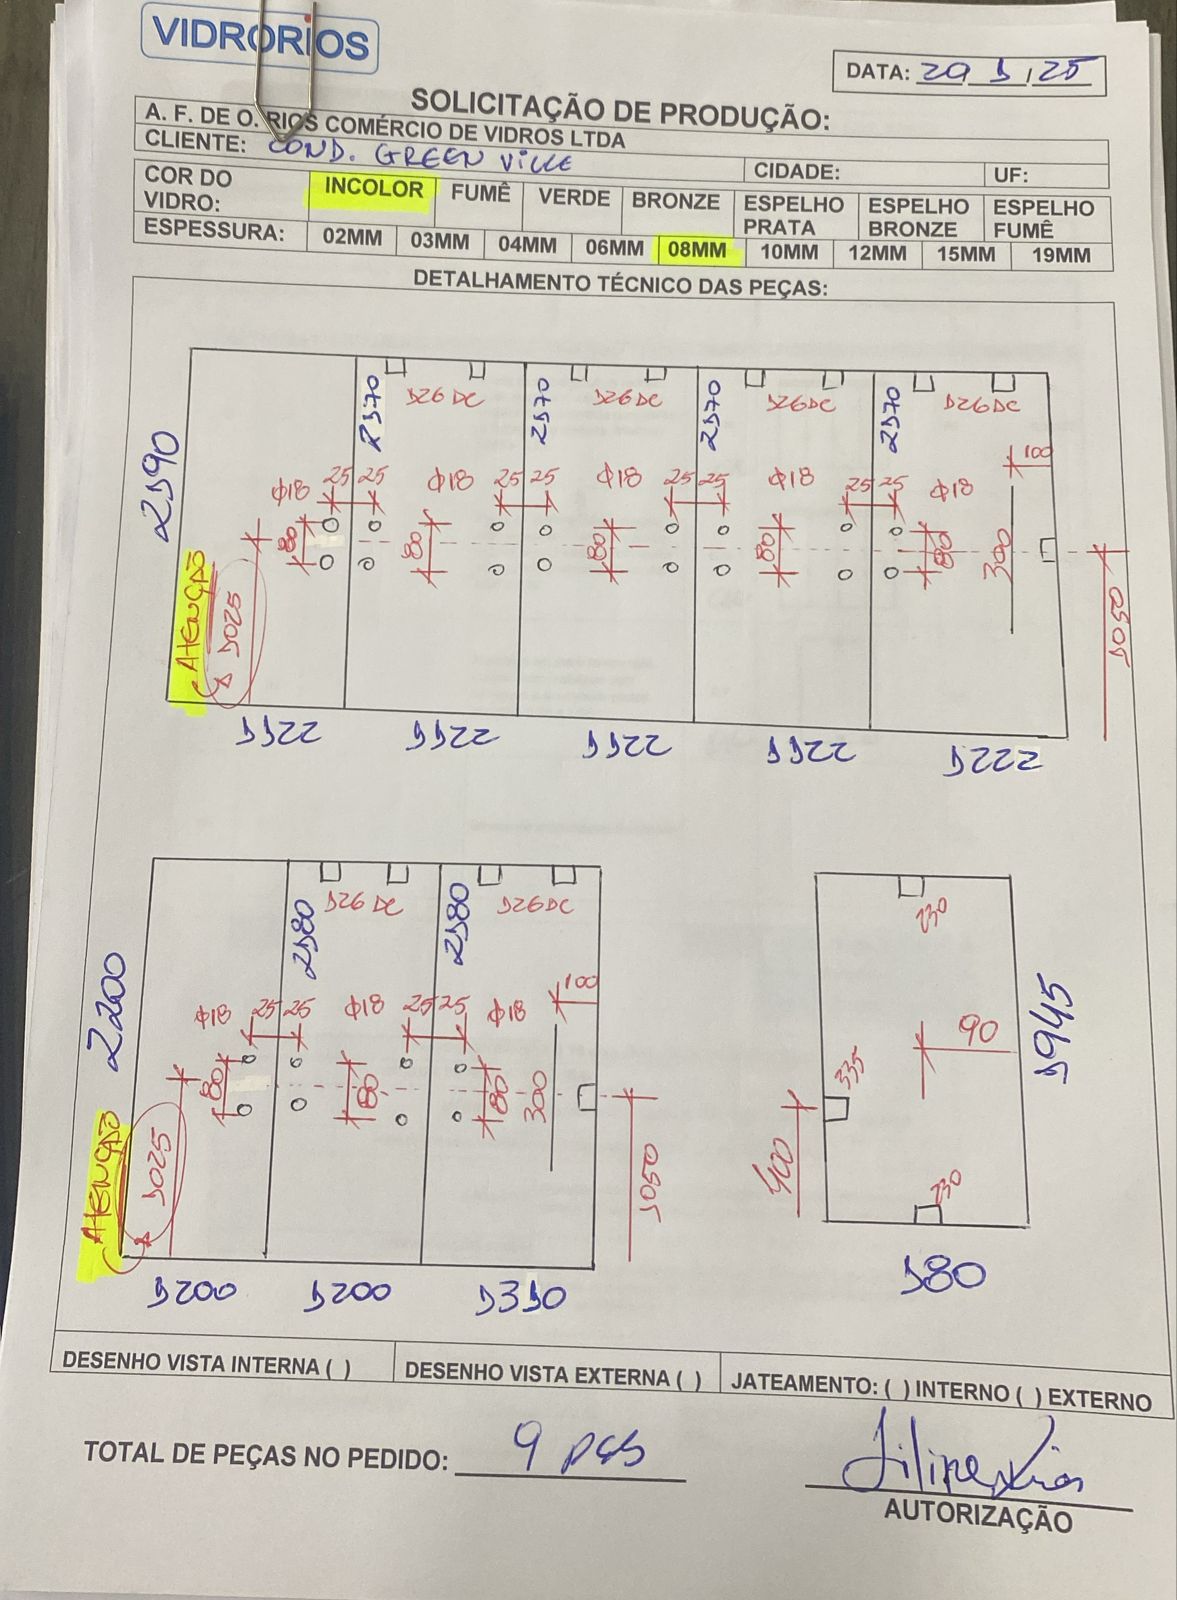 VIDRORIOS
DATA: 29 1 25
SOLICITAÇÃO DE PRODUÇÃO:
A. F. DE O. RIOS COMÉRCIO DE VIDROS LTDA
CLIENTE: COND. GREEN VILLE CIDADE: UF:
COR DO VIDRO: INCOLOR FUMÊ VERDE BRONZE ESPELHO PRATA ESPELHO BRONZE ESPELHO FUMÊ
ESPESSURA: 02MM 03MM 04MM 06MM 08MM 10MM 12MM 15MM 19MM
DETALHAMENTO TÉCNICO DAS PEÇAS:
2190 2170 2170 2170 2170
126 DC 126 DC 126 DC 126 DC
100
Φ18 25 25 Φ18 25 25 Φ18 25 25 Φ18 25 25 Φ18
80 80 80 80 80 300
ATENÇÃO 1025 1050
1122 1122 1122 1122 1222
2200 2180 2180
126 DC 126 DC
100
Φ18 25 25 Φ18 25 25 Φ18
80 80 80 300
ATENÇÃO 1025 1050
1200 1200 1310
230
90 1945
335
400
230
180
DESENHO VISTA INTERNA ( ) DESENHO VISTA EXTERNA ( ) JATEAMENTO: ( ) INTERNO ( ) EXTERNO
TOTAL DE PEÇAS NO PEDIDO: 9 pçs
AUTORIZAÇÃO